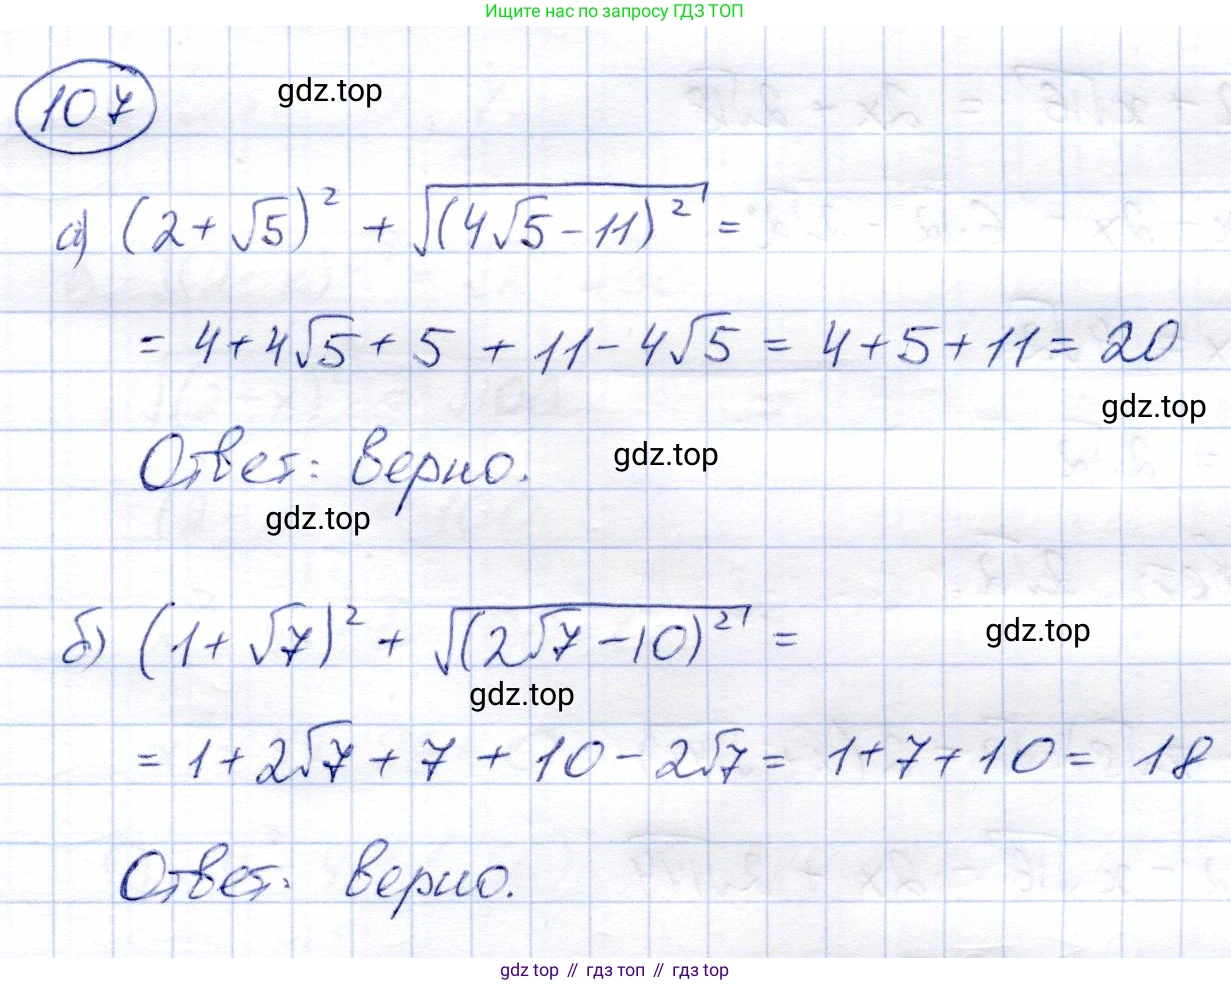 Ищите нас по запросу ГДЗ ТОП
107
gdz.top
а) (2+√5)² + √(4√5-11)² =
= 4+4√5+5 + 11-4√5 = 4+5+11 = 20
gdz.top
Ответ: верно.
gdz.top
gdz.top
б) (1+√7)² + √(2√7-10)² =
gdz.top
gdz.top
= 1+2√7+7 + 10-2√7 = 1+7+10 = 18
Ответ: верно.
gdz top // гдз топ // гдз top